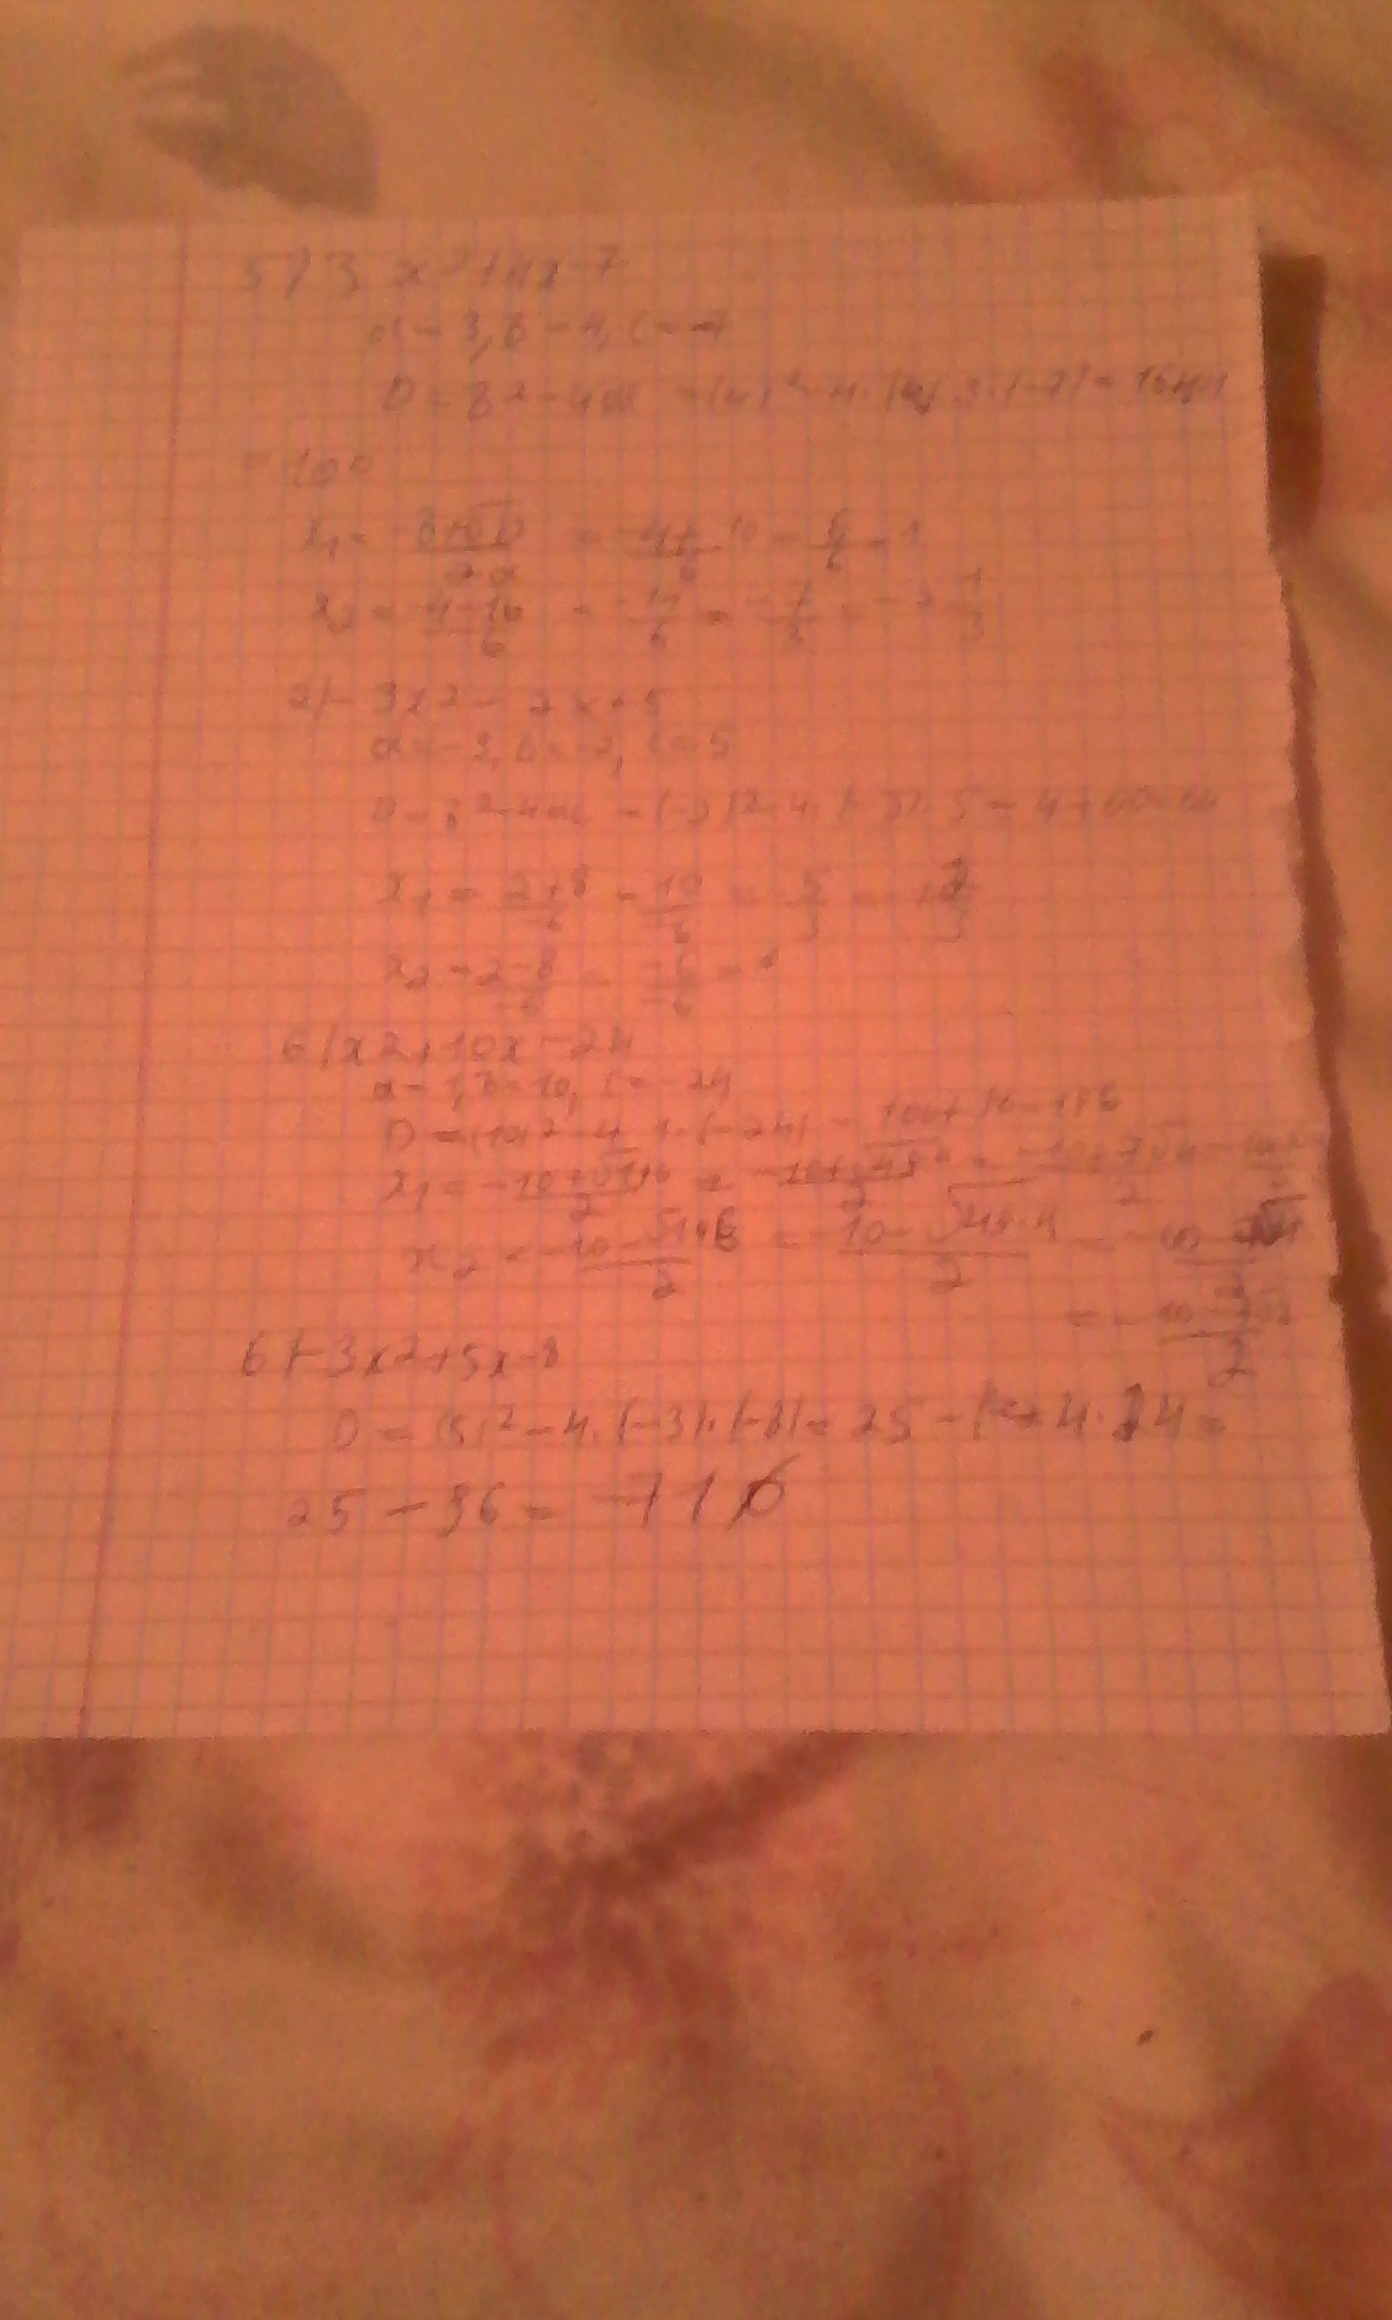 5) 3x²+4x-7
a=3, b=4, c=-7
D=b²-4ac =(4)²-4·3·(-7)=16+84
=100
x1= -b+√D/2a = -4+10/6 = 6/6 = 1
x2= -4-10/6 = -14/6 = -7/3 = -2 1/3
2) -3x2-2x+5
a=-3, b=-2, c=5
D=b²-4ac =(-2)2-4·(-3)·5=4+60=64
x1= 2+8/-6 = 10/-6 = -5/3
x2= 2-8/-6 = -6/-6 = 1
6) x2+10x-24
a=1, b=10, c=-24
D=(10)2-4·1·(-24)=100+96=196
x1= -10+√196/2 = -10+√49·4/2 = -10+7√4/2
x2= -10-√196/2 = -10-√49·4/2 = -10-7√4/2
= -10-7√2/2
6) -3x2+5x-8
D=(5)2-4·(-3)·(-8)=25-4·24=
25-96= -71